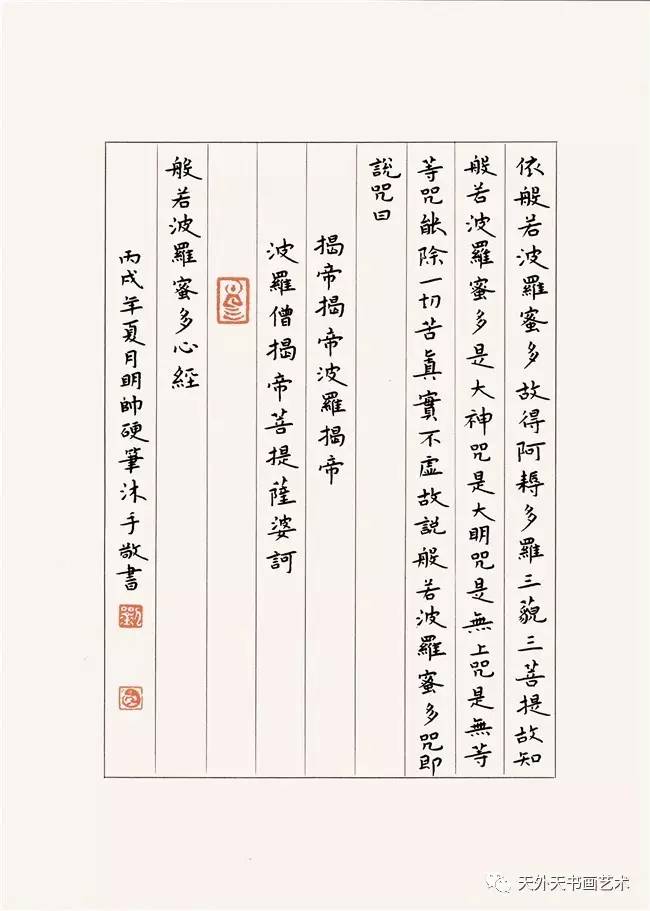 依般若波羅蜜多故得阿耨多羅三藐三菩提故知
般若波羅蜜多是大神咒是大明咒是無上咒是無等
等咒能除一切苦真實不虛故説般若波羅蜜多咒即
説咒曰
揭帝揭帝波羅揭帝
波羅僧揭帝菩提薩婆訶
般若波羅蜜多心經
丙戌年夏月明帥硬筆沐手敬書
劉
天外天书画艺术